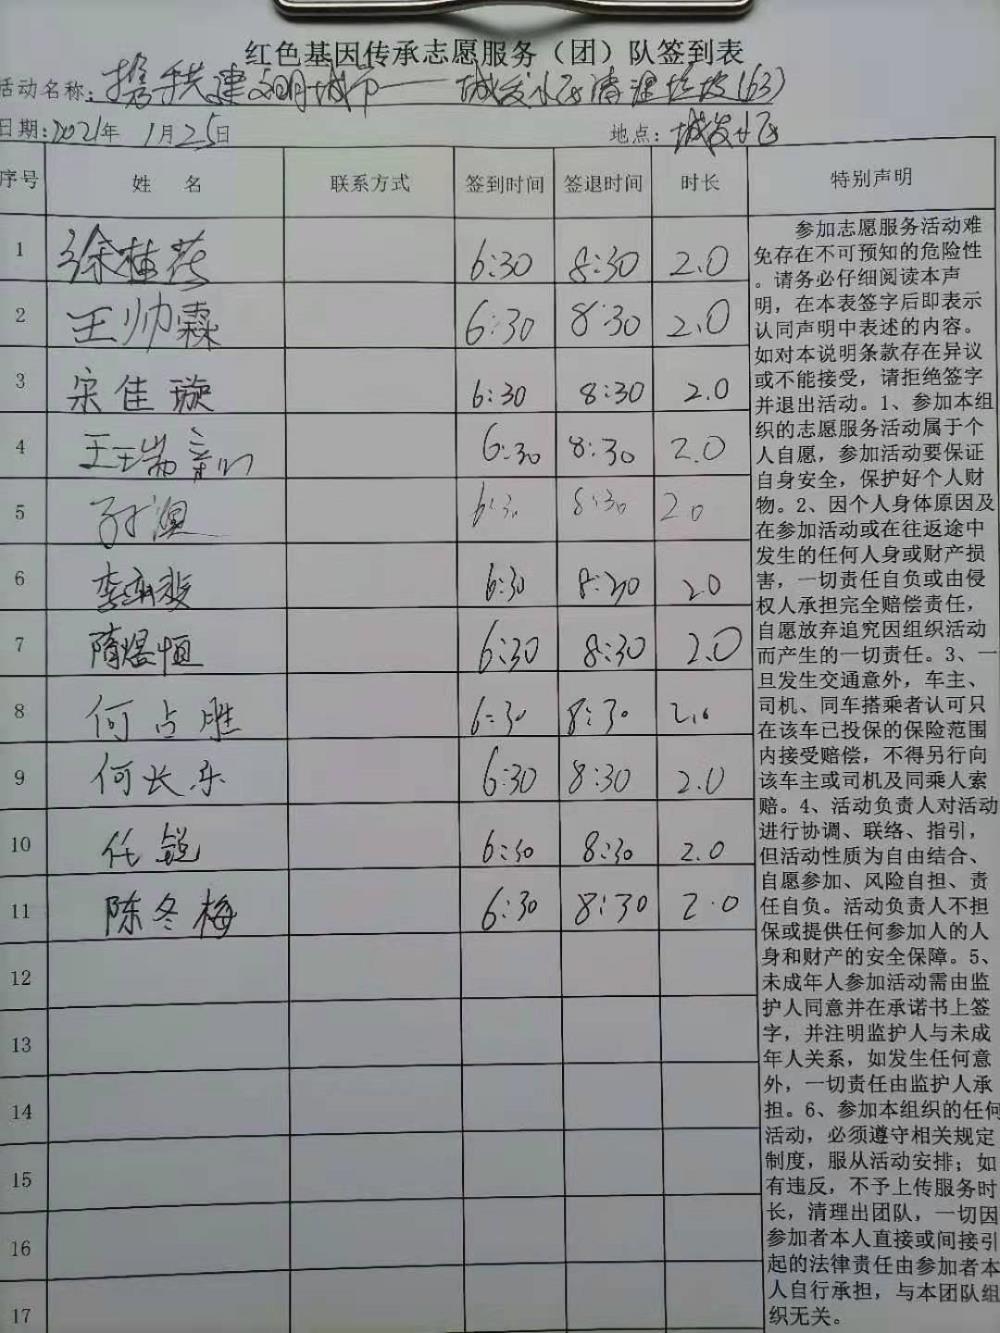 红色基因传承志愿服务（团）队签到表
活动名称：携手共建文明城市——城发小区清理垃圾(63)
日期：2021年1月25日 地点：城发小区
序号 姓 名 联系方式 签到时间 签退时间 时长 特别声明
1 徐桂花 6:30 8:30 2.0
2 王帅霖 6:30 8:30 2.0
3 宋佳璇 6:30 8:30 2.0
4 王瑞 6:30 8:30 2.0
5 6:30 8:30 2.0
6 李 6:30 8:30 2.0
7 隋煜恒 6:30 8:30 2.0
8 何占胜 6:30 8:30 2.0
9 何长乐 6:30 8:30 2.0
10 任锐 6:30 8:30 2.0
11 陈冬梅 6:30 8:30 2.0
12
13
14
15
16
17
参加志愿服务活动难
免存在不可预知的危险性
。请务必仔细阅读本声
明，在本表签字后即表示
认同声明中表述的内容。
如对本说明条款存在异议
或不能接受，请拒绝签字
并退出活动。1、参加本组
织的志愿服务活动属于个
人自愿，参加活动要保证
自身安全，保护好个人财
物。2、因个人身体原因及
在参加活动或在往返途中
发生的任何人身或财产损
害，一切责任自负或由侵
权人承担完全赔偿责任，
自愿放弃追究因组织活动
而产生的一切责任。3、一
旦发生交通意外，车主、
司机、同车搭乘者认可只
在该车已投保的保险范围
内接受赔偿，不得另行向
该车主或司机及同乘人索
赔。4、活动负责人对活动
进行协调、联络、指引，
但活动性质为自由结合、
自愿参加、风险自担、责
任自负。活动负责人不担
保或提供任何参加人的人
身和财产的安全保障。5、
未成年人参加活动需由监
护人同意并在承诺书上签
字，并注明监护人与未成
年人关系，如发生任何意
外，一切责任由监护人承
担。6、参加本组织的任何
活动，必须遵守相关规定
制度，服从活动安排；如
有违反，不予上传服务时
长，清理出团队，一切因
参加者本人直接或间接引
起的法律责任由参加者本
人自行承担，与本团队组
织无关。